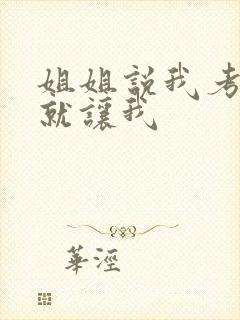 姐姐説我考
就讓我
華涇